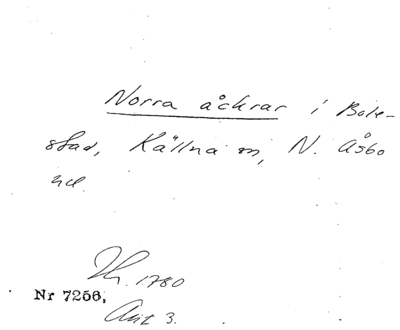 Norra åckrar i Bole-
stad, Källna sn, N. Åsbo
hd.
1780
Nr 7256,
Akt 3.